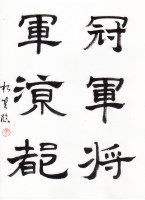 冠軍将
軍涼都